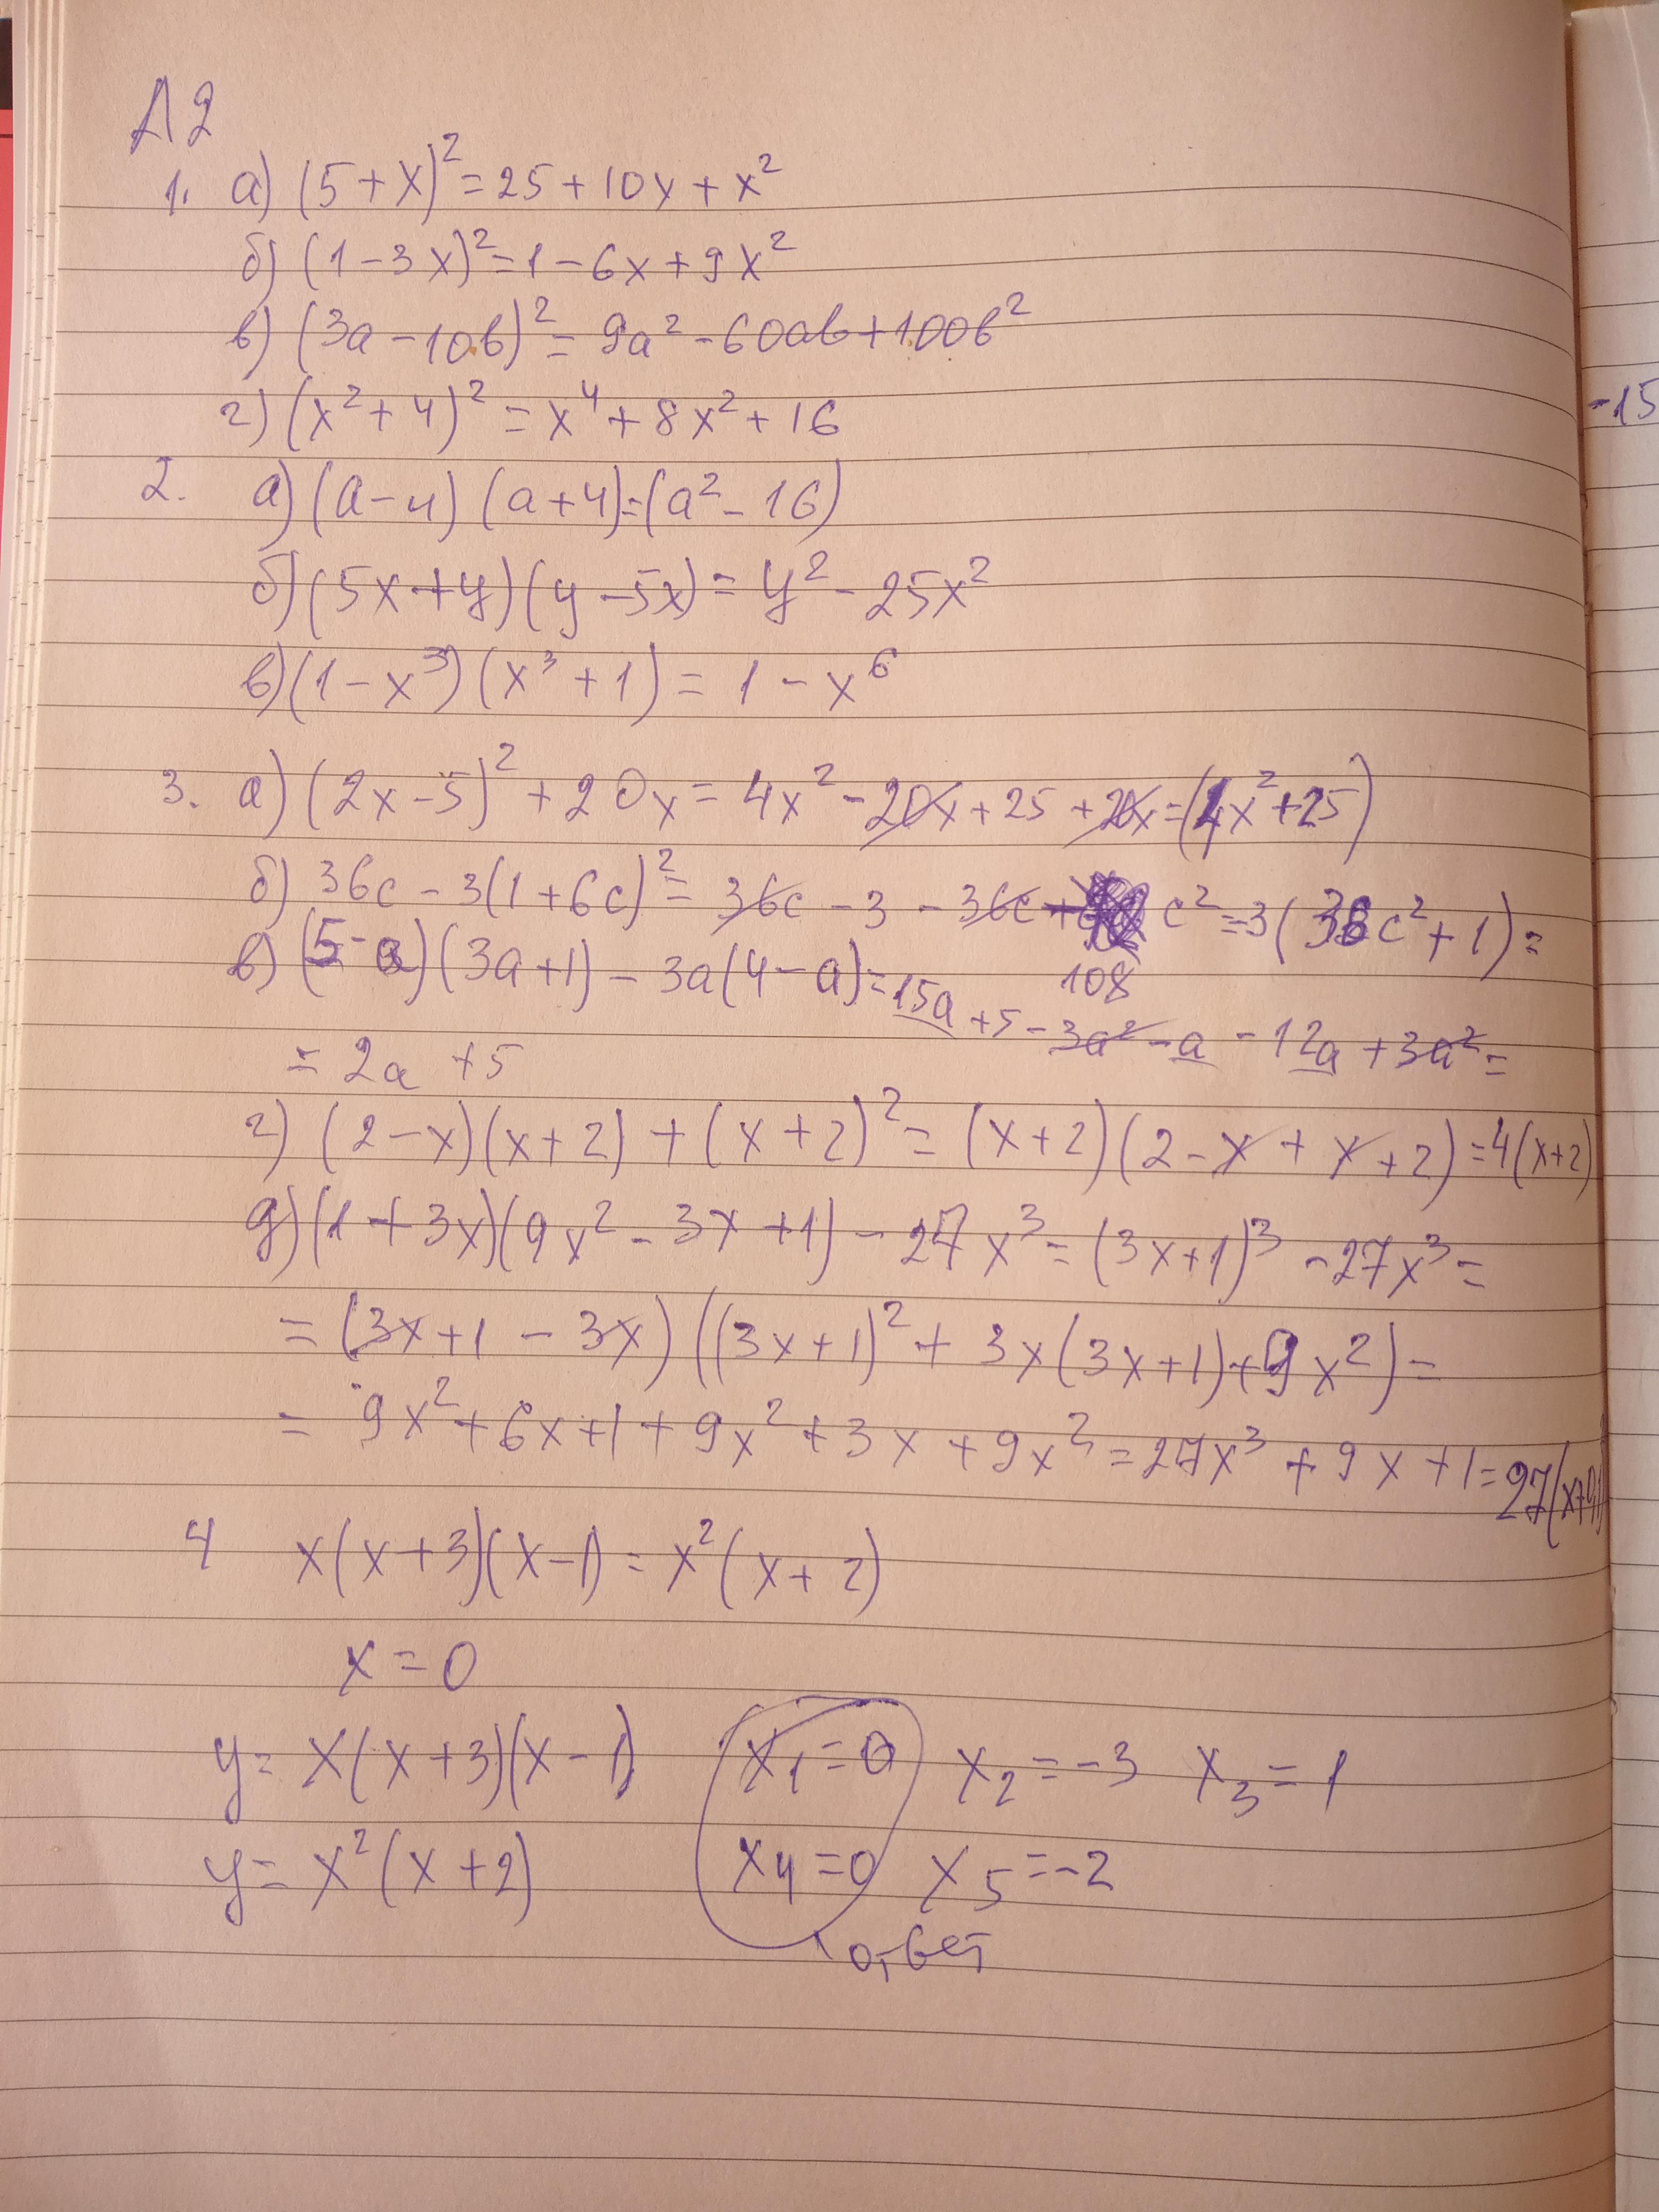 Д2
1. а) (5+x)² = 25 + 10x + x²
б) (1-3x)² = 1 - 6x + 9x²
в) (3a - 10b)² = 9a² - 60ab + 100b²
г) (x² + 4)² = x⁴ + 8x² + 16
2. а) (a-4) (a+4) = (a² - 16)
б) (5x+y) (y-5x) = y² - 25x²
в) (1-x³) (x³+1) = 1 - x⁶
3. а) (2x-5)² + 20x = 4x² - 20x + 25 + 20x = (4x² + 25)
б) 36c - 3(1+6c)² = 36c - 3 - 36c + c² = -3(36c² + 1) =
108
в) (5-a) (3a+1) - 3a(4-a) = 15a + 5 - 3a² - a - 12a + 3a² =
= 2a + 5
г) (2-x)(x+2) + (x+2)² = (x+2)(2-x+x+2) = 4(x+2)
д) (1+3x)(9x² - 3x + 1) - 27x³ = (3x+1)³ - 27x³ =
= (3x+1 - 3x) ((3x+1)² + 3x(3x+1) + 9x²) =
= 9x² + 6x + 1 + 9x² + 3x + 9x² = 27x³ + 9x + 1 = 27(
4 x(x+3)(x-1) = x²(x+2)
x = 0
y = x(x+3)(x-1) x₁=0 x₂=-3 x₃=1
y = x²(x+2) x₄=0 x₅=-2
ответ
-15